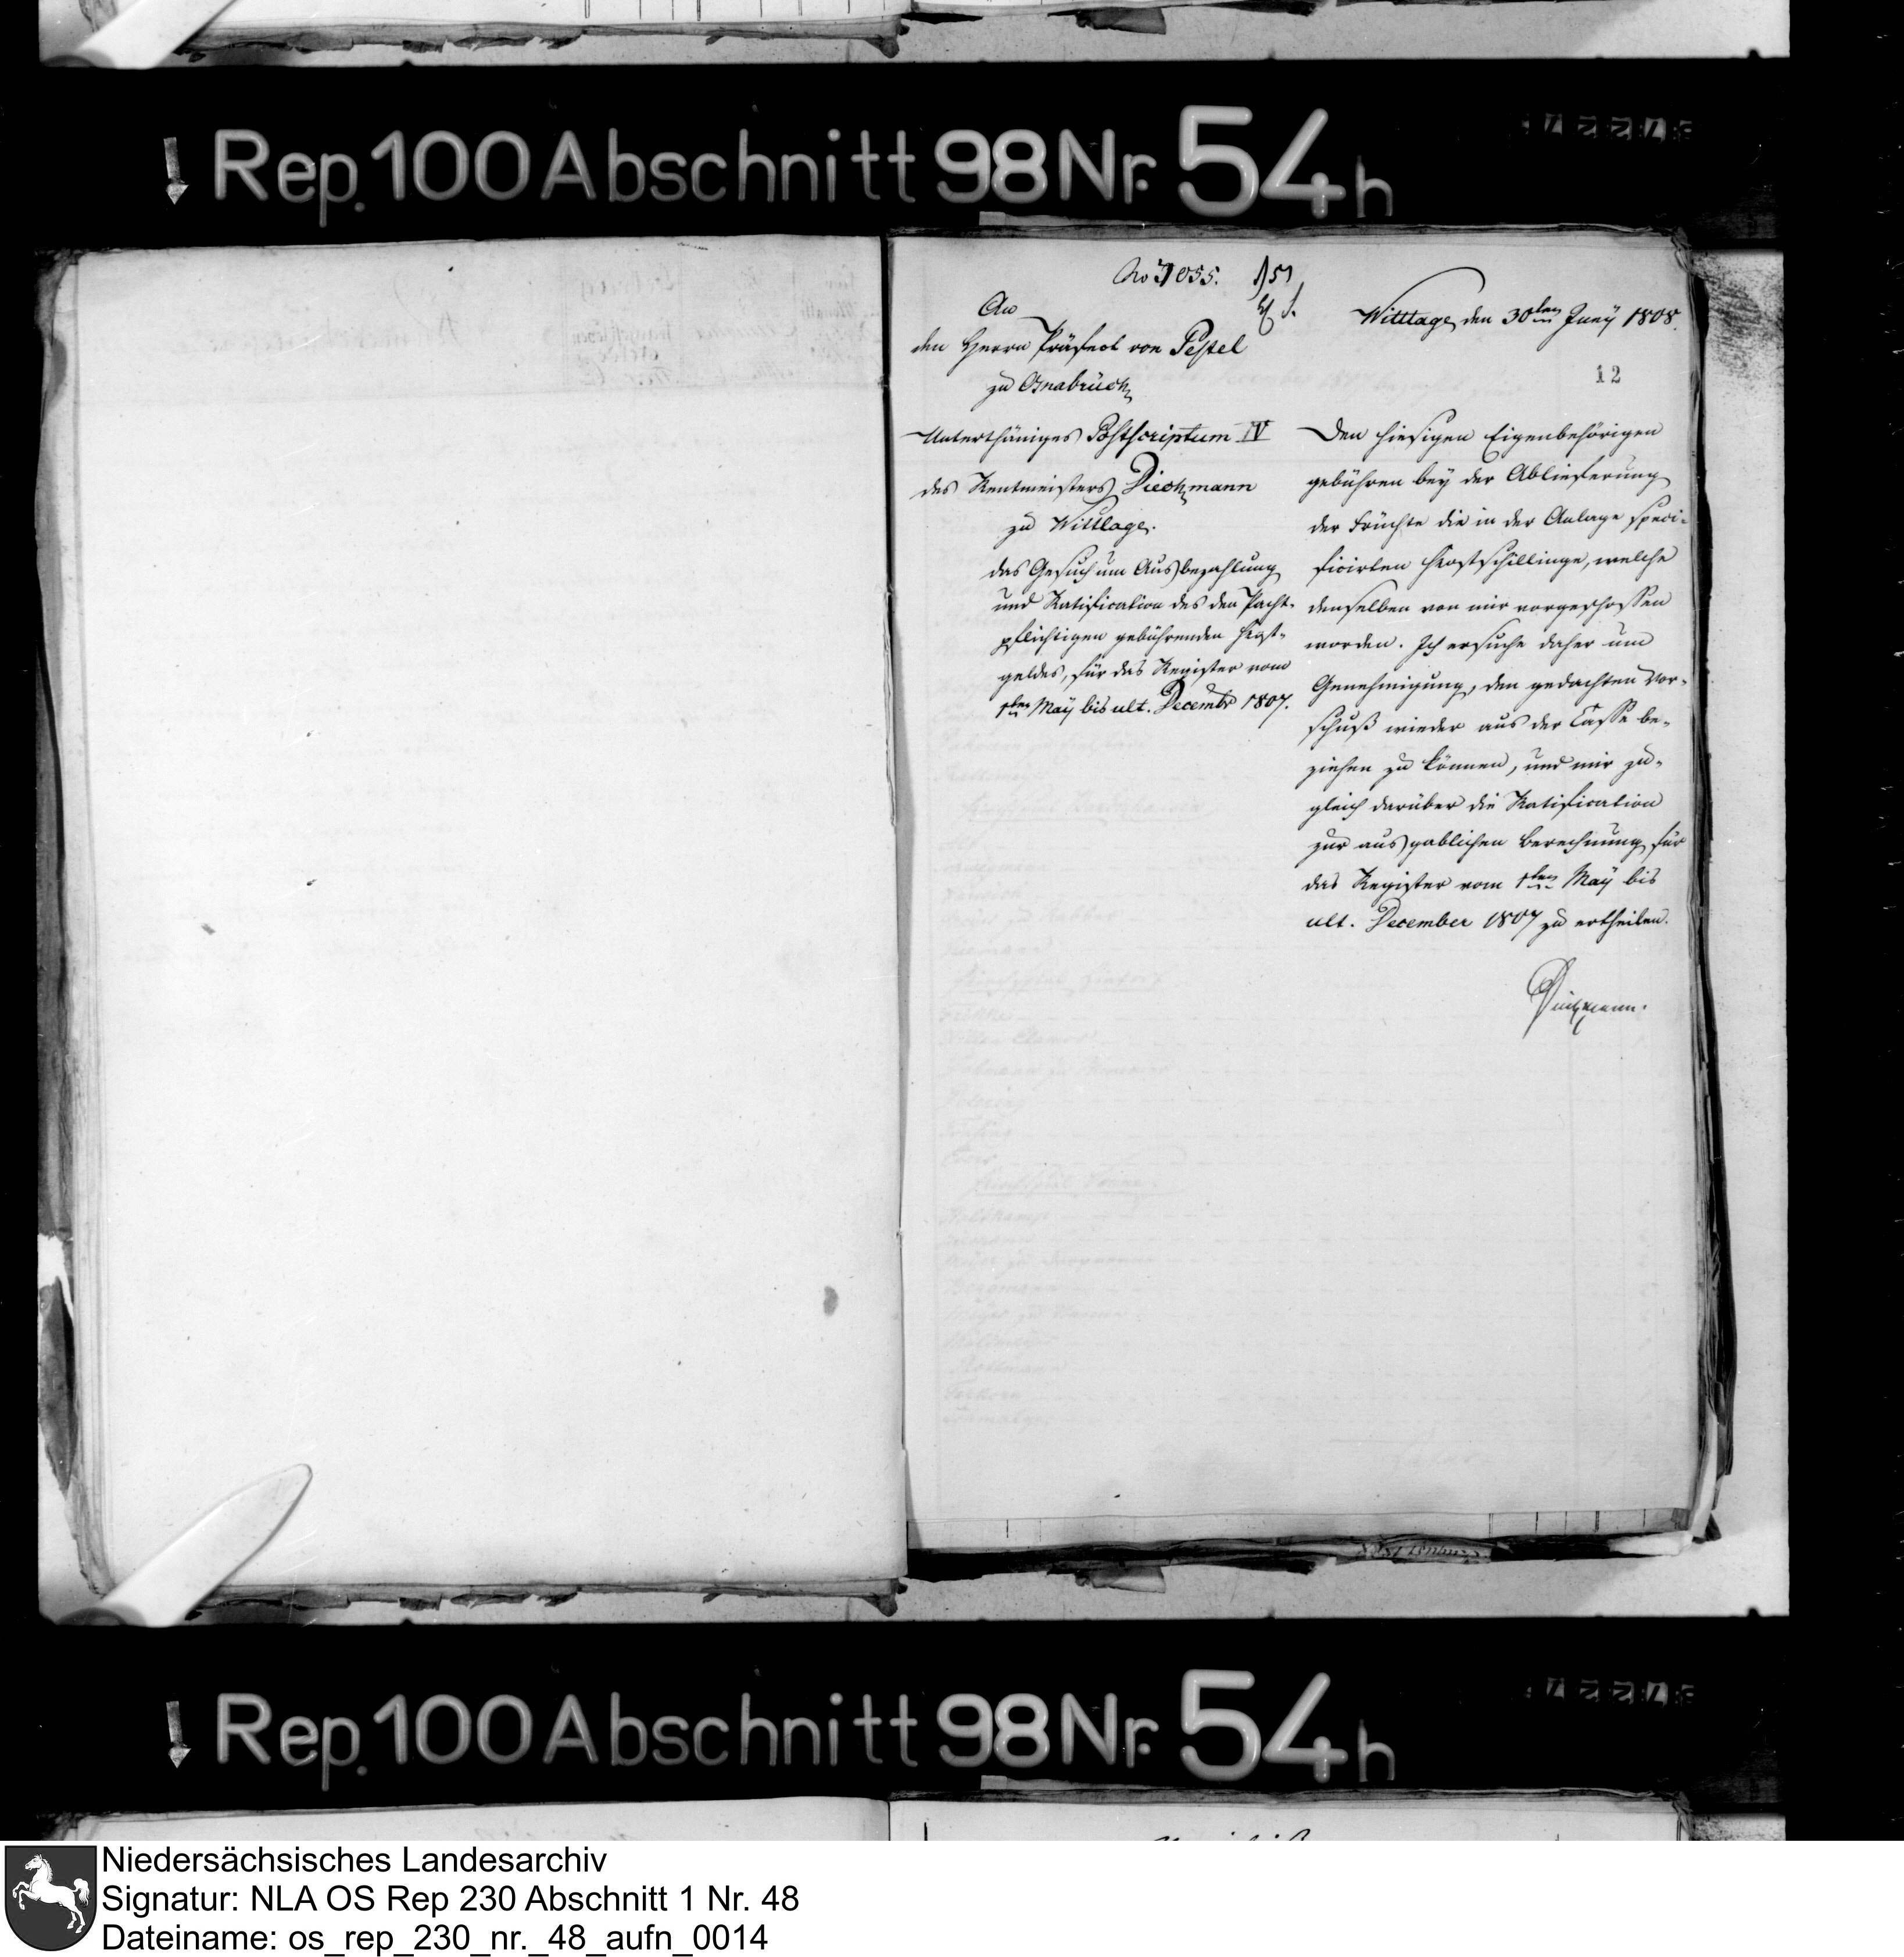 Rep. 100 Abschnitt 98 Nr. 54 h
No 3055.
An
den Herrn Präfect von Pestel
zu Osnabrück
Wittlage, den 30ten Juny 1808.
12
Unterthäniges Postscriptum IV
des Rentmeisters Dieckmann
zu Wittlage.
das Gesuch um Ausbezahlung
und Ratification des den Pacht-
pflichtigen gebührenden
geldes, für das Register vom
1ten May bis ult. Decembr 1807.
Den hiesigen Eigenbehörigen
gebühren bey der Ablieferung
der Früchte die in der Anlage speci-
ficirten schillinge, welche
denselben von mir vorgeschossen
worden. Ich ersuche daher um
Genehmigung, den gedachten Vor-
schuß wieder aus der Casse be-
ziehen zu können, und mir zu-
gleich darüber die Ratification
zur ausgablichen Berechnung für
das Register vom 1ten May bis
ult. December 1807 zu ertheilen.
Dieckmann.
Rep. 100 Abschnitt 98 Nr. 54 h
Niedersächsisches Landesarchiv
Signatur: NLA OS Rep 230 Abschnitt 1 Nr. 48
Dateiname: os_rep_230_nr._48_aufn_0014